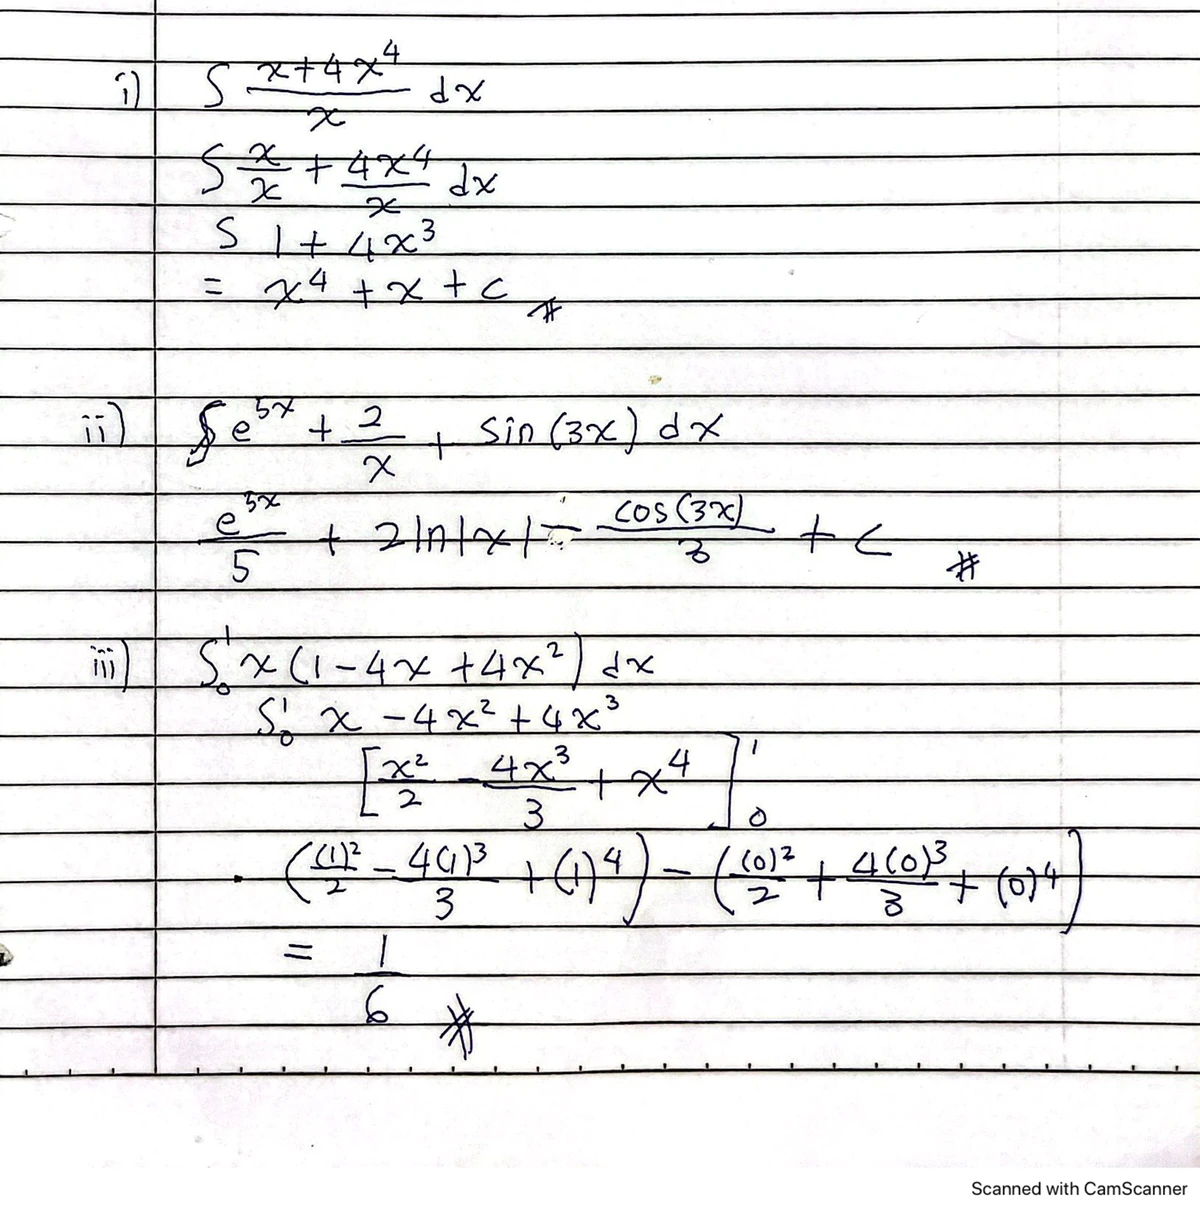 i) ∫ (x+4x⁴)/x dx
∫ x/x + 4x⁴/x dx
∫ 1 + 4x³
= x⁴ + x + c #
ii) ∫ e⁵ˣ + 2/x + sin(3x) dx
e⁵ˣ/5 + 2ln|x| - cos(3x)/3 + c #
iii) ∫₀¹ x(1-4x+4x²) dx
∫₀¹ x - 4x² + 4x³
[x²/2 - 4x³/3 + x⁴]₀¹
((1)²/2 - 4(1)³/3 + (1)⁴) - ((0)²/2 + 4(0)³/3 + (0)⁴)
= 1/6 #
Scanned with CamScanner